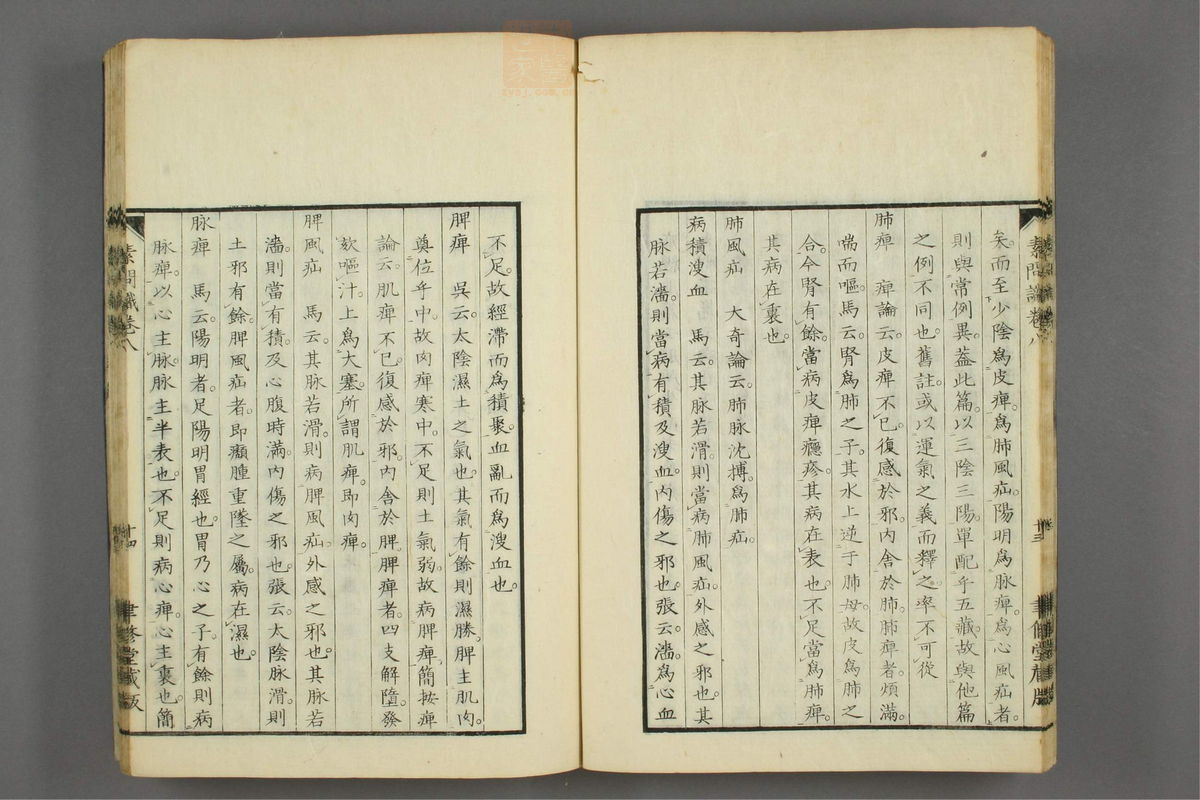 矣。而至少陰爲皮痺。爲肺風疝。陽明爲脉痺。爲心風疝者。
則與常例異。蓋此篇。以三陰三陽。單配乎五藏。故與他篇
之例不同也。舊註。或以運氣之義而釋之。率不可從
肺痺　痺論云。皮痺不已。復感於邪。内舍於肺。肺痺者。煩滿。
喘而嘔。馬云。腎爲肺之子。其水上逆于肺母。故皮爲肺之
合。今腎有餘。當病皮痺癮疹。其病在表也。不足當爲肺痺。
其病在裏也。
肺風疝　大奇論云。肺脉沈搏。爲肺疝。
病積溲血　馬云。其脉若滑。則當病肺風疝。外感之邪也。其
脉若濇。則當病有積及溲血。内傷之邪也。張云。濇爲心血
素問識卷八
十三
聿修堂藏版
不足。故經滯而爲積聚。血亂而爲溲血也。
脾痺　吳云。太陰濕土之氣也。其氣有餘則濕勝。脾主肌肉。
奠位乎中。故肉痺寒中。不足則土氣弱。故病脾痺。簡按痺
論云。肌痺不已。復感於邪。内舍於脾。脾痺者。四支解墮。發
欬嘔汁。上爲大塞。所謂肌痺。即肉痺。
脾風疝　馬云。其脉若滑。則病脾風疝。外感之邪也。其脉若
濇。則當有積。及心腹時滿。内傷之邪也。張云。太陰脉滑。則
土邪有餘。脾風疝者。即㿗腫重墜之屬。病在濕也。
脉痺　馬云。陽明者。足陽明胃經也。胃乃心之子。有餘則病
脉痺。以心主脉。脉主半表也。不足則病心痺。心主裏也。簡
素問識卷八
十四
聿修堂藏版